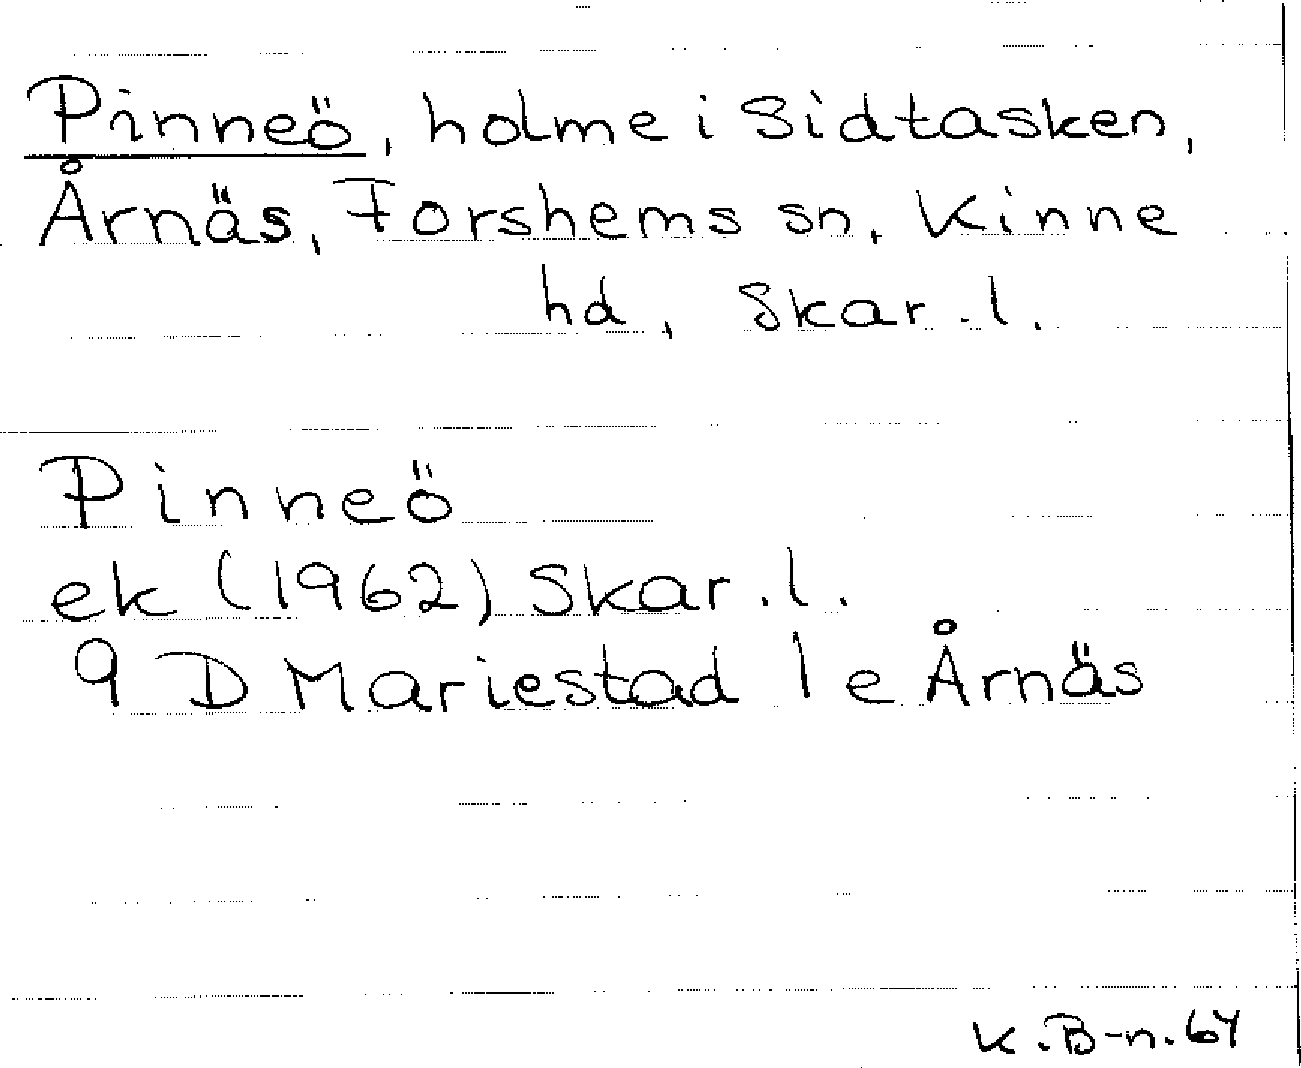 Pinneö, holme i Sidtasken,
Årnäs, Forshems sn, Kinne
hd, Skar.l.
Pinneö
ek (1962) Skar.l.
9 D Mariestad 1 e Årnäs
K.B-n.64